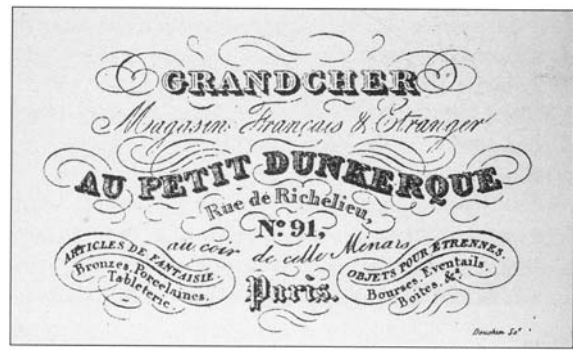 GRANDCHER
Magasin Français & Etranger
AU PETIT DUNKERQUE
Rue de Richelieu,
Nº 91,
au coin de celle Ménars
Paris.
ARTICLES DE FANTAISIE.
Bronzes, Porcelaines,
Tableterie.
OBJETS POUR ÉTRENNES.
Bourses, Eventails,
Boites, &ª